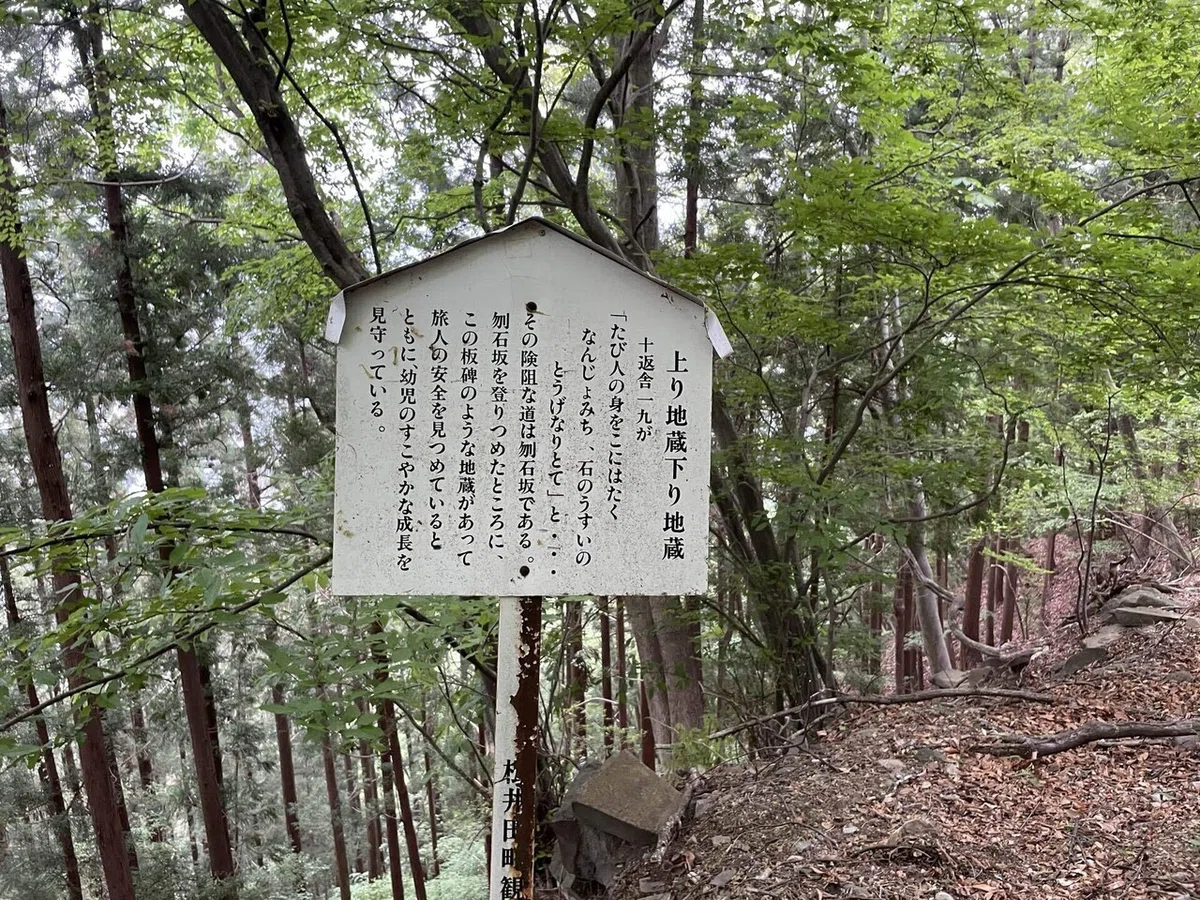 上り地蔵下り地蔵
十返舎一九が
「たび人の身をこにはたく
なんじょみち、石のうすいの
とうげなりとて」と・・・
その険阻な道は刎石坂である。
刎石坂を登りつめたところに、
この板碑のような地蔵があって
旅人の安全を見つめていると
ともに幼児のすこやかな成長を
見守っている。
松井田町観